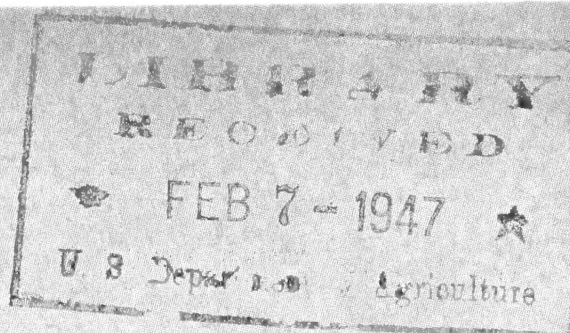 LIBRARY
RECEIVED
★ FEB 7 - 1947 ★
U. S. Department of Agriculture